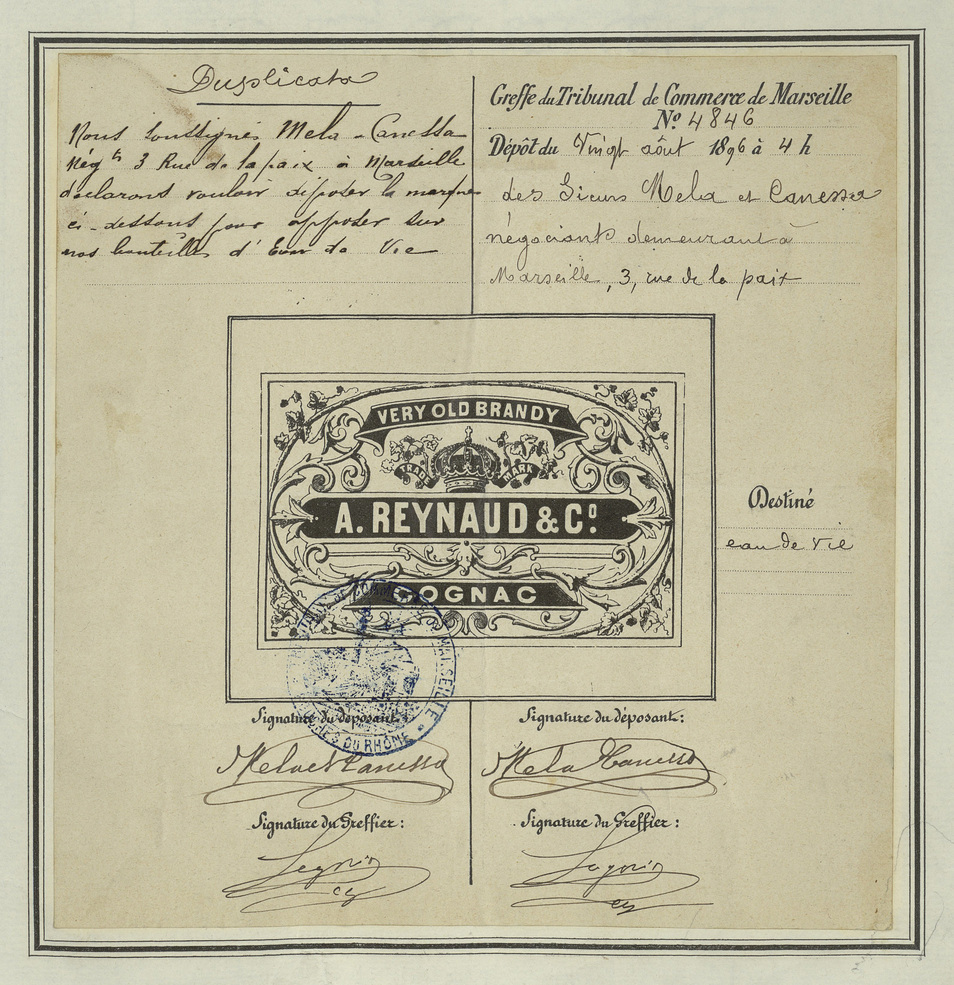 Duplicata
Nous soussignés Mela - Canessa
Nég ts 3 Rue de la paix à Marseille
déclarons vouloir déposer la marque
ci-dessous pour apposer sur
nos bouteilles d'Eau de Vie
Greffe du Tribunal de Commerce de Marseille
No 4846
Dépôt du Vingt août 1896 à 4 h
des Sieurs Mela et Canessa
négociants demeurant à
Marseille, 3, rue de la paix
VERY OLD BRANDY
TRADE MARK
A. REYNAUD & Co.
COGNAC
Destiné
eau de vie
TRIBUNAL DE COMMERCE DE MARSEILLE
BOUCHES DU RHÔNE
Signature du déposant:
Mela et Canessa
Signature du Greffier:
Signature du déposant:
Mela Canessa
Signature du Greffier: